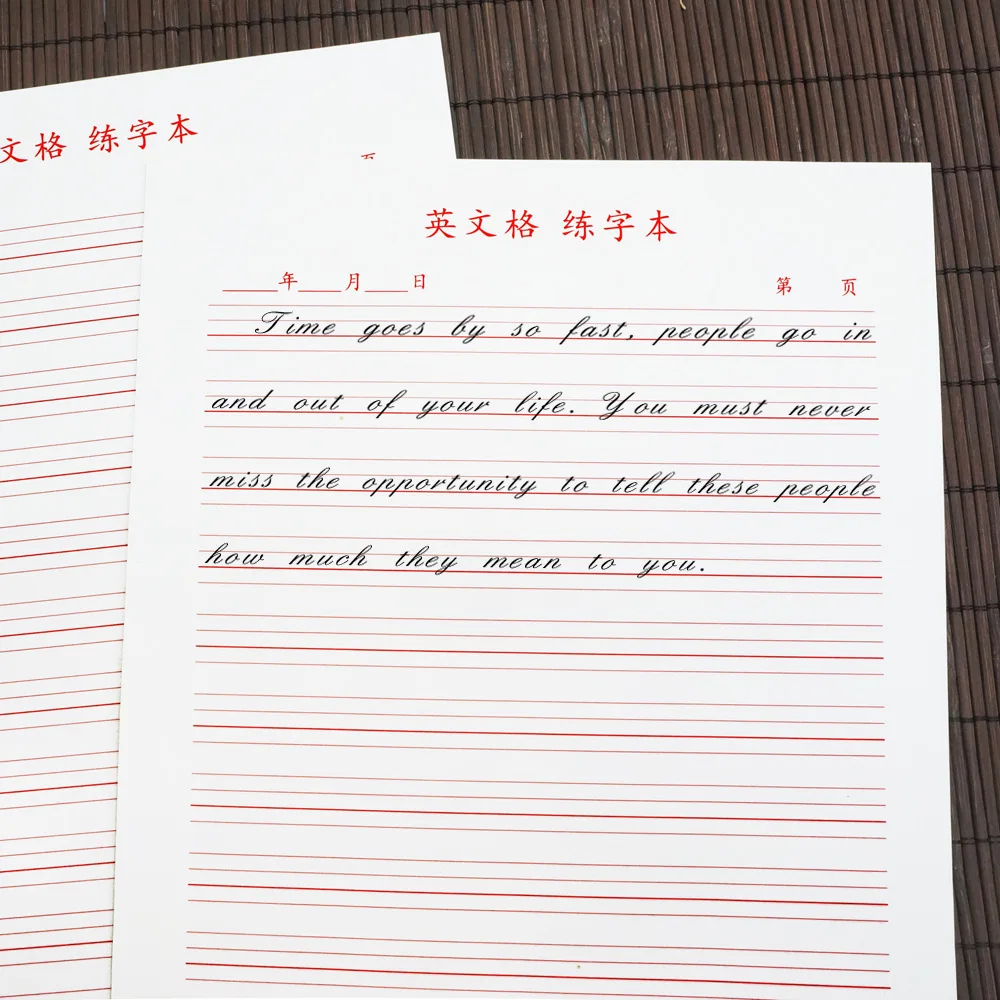 文格 练字本
页
英文格 练字本
____年____月____日 第 页
Time goes by so fast, people go in
and out of your life. You must never
miss the opportunity to tell these people
how much they mean to you.